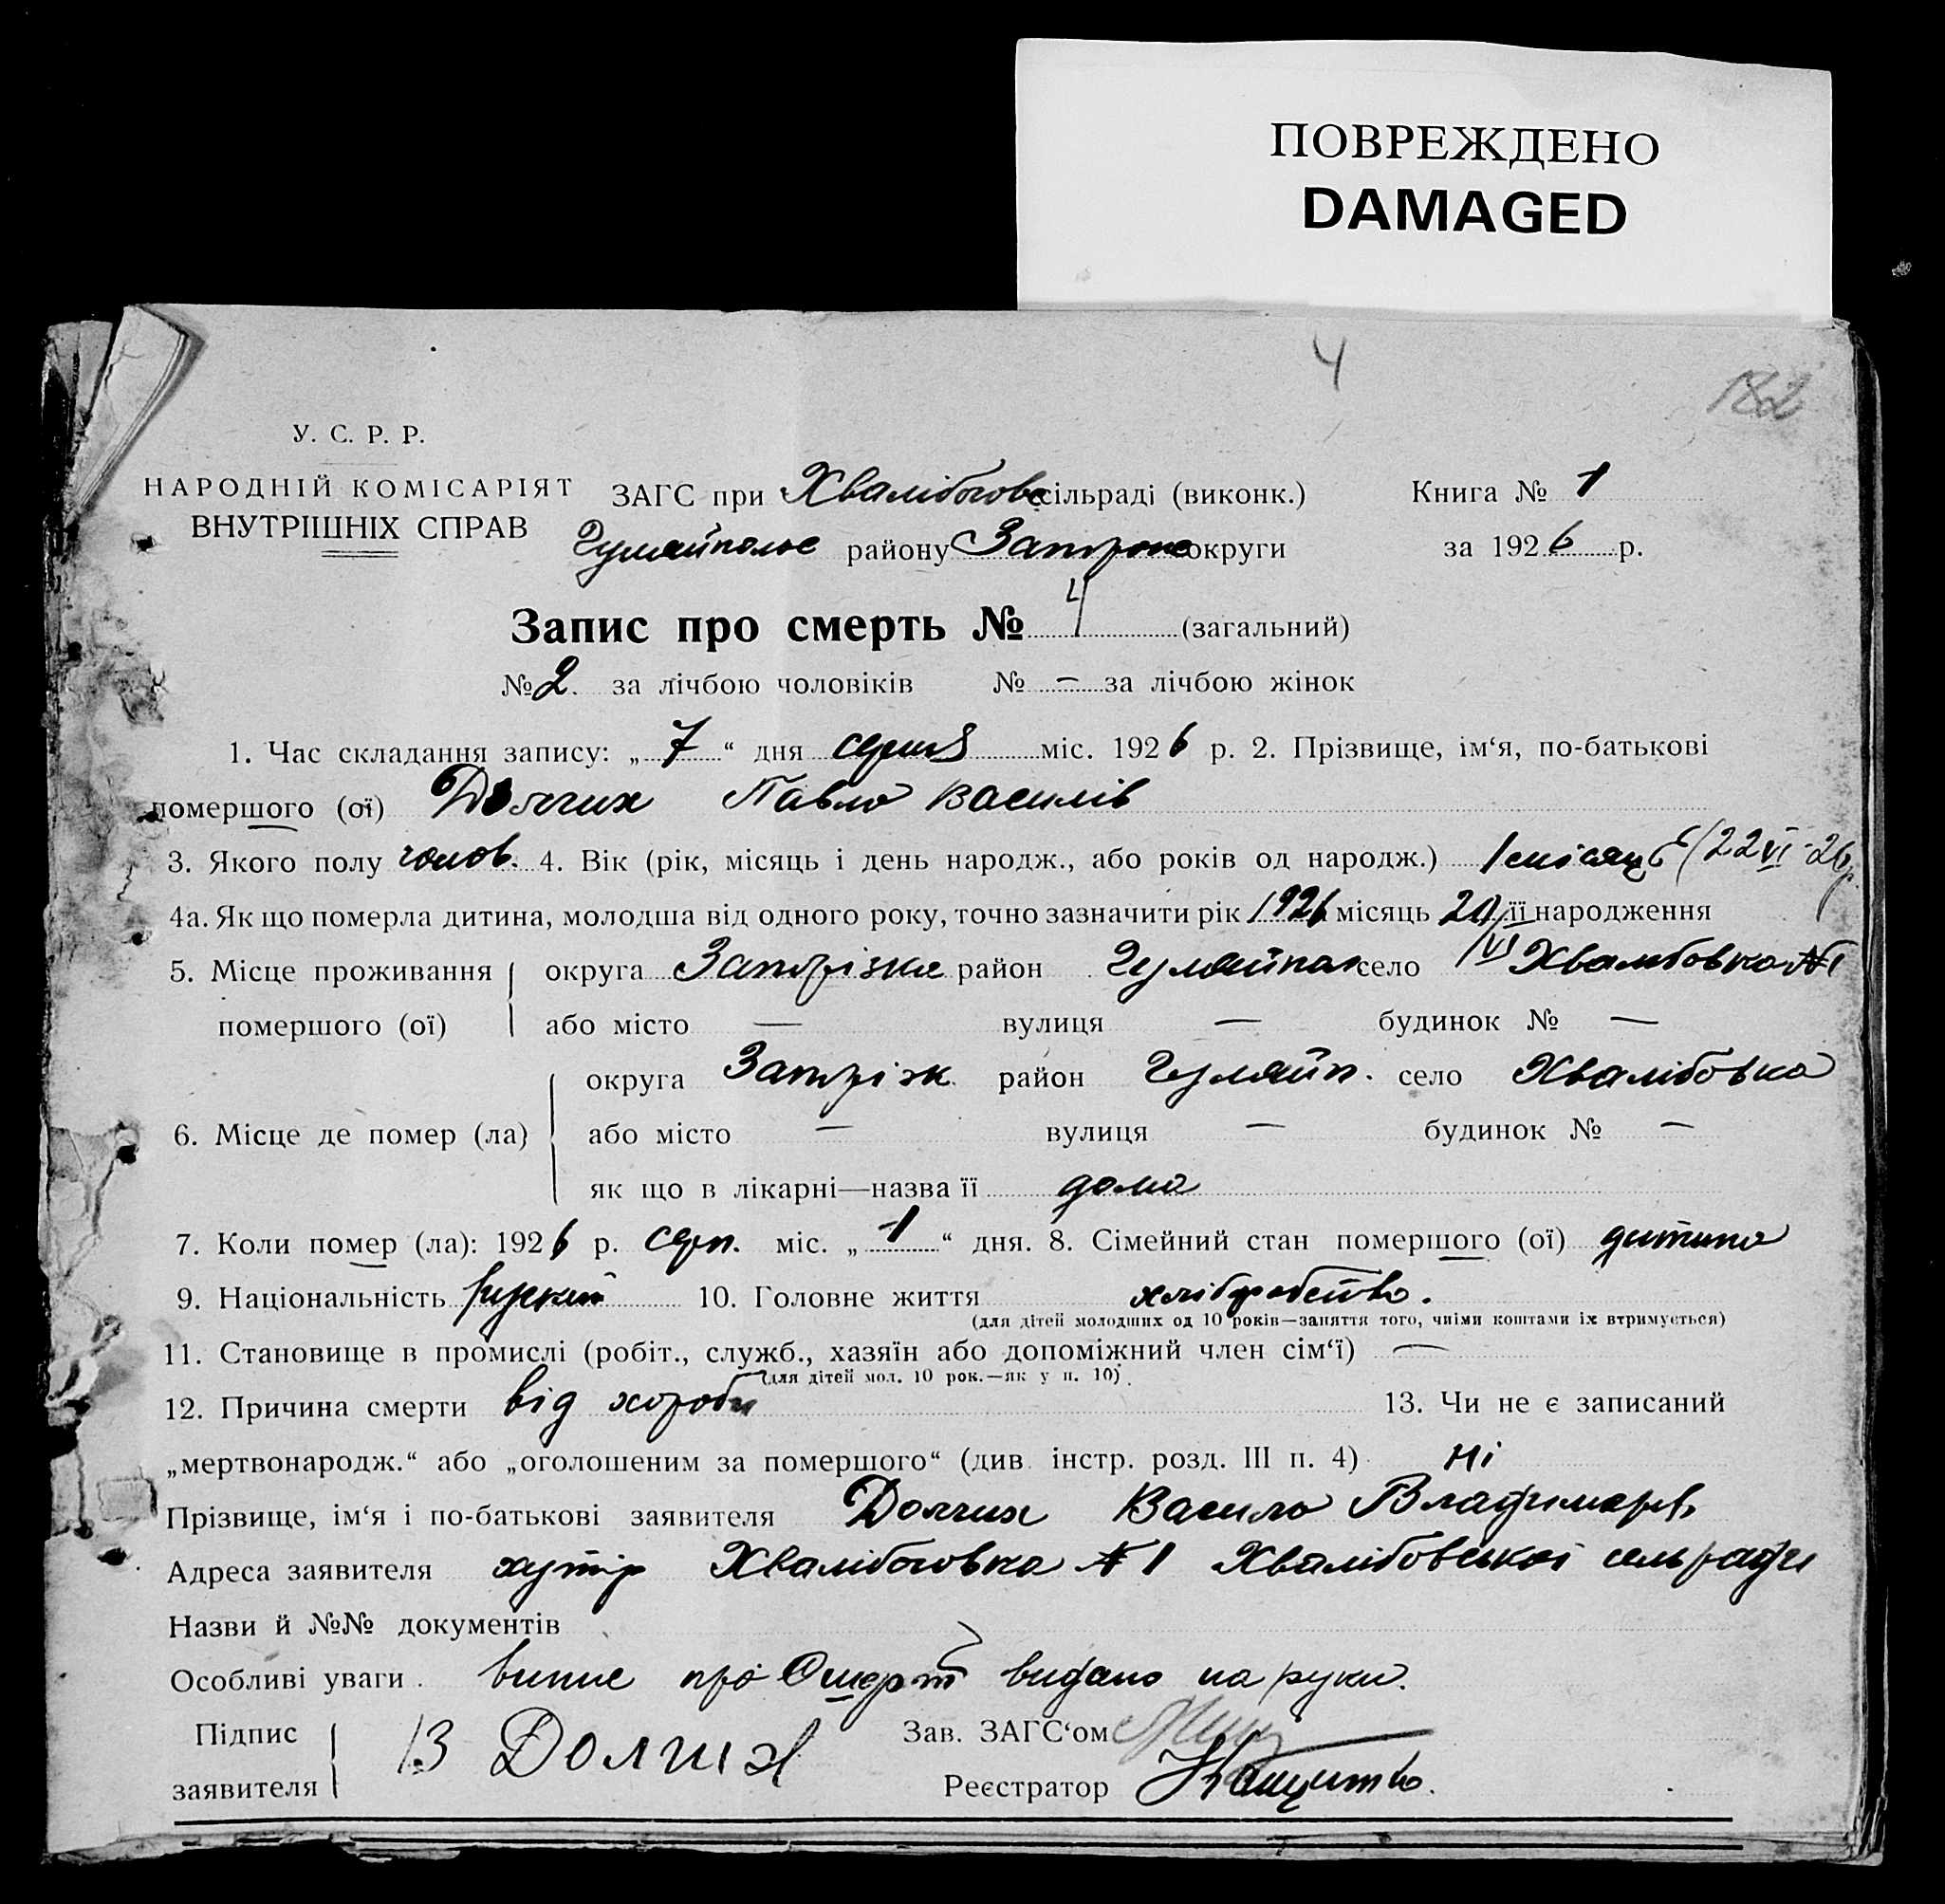 ПОВРЕЖДЕНО
DAMAGED
4
182
У. С. Р. Р.
НАРОДНІЙ КОМІСАРІЯТ
ВНУТРІШНІХ СПРАВ
ЗАГС при Хвалібогов сільраді (виконк.) Книга № 1
Гуляйполье району Запоріж округи за 1926 р.
Запис про смерть № 4 (загальний)
№ 2. за лічбою чоловіків № — за лічбою жінок
1. Час складання запису: „7“ дня серпня міс. 1926 р. 2. Прізвище, ім‘я, по-батькові
помершого (ої) Долгих Павло Василів
3. Якого полу чолов. 4. Вік (рік, місяць і день народж., або років од народж.) 1 місяць (22 VI 26 р.
4а. Як що померла дитина, молодша від одного року, точно зазначити рік 1926 місяць VI її народження
5. Місце проживання помершого (ої) округа Запорізка район Гуляйпол село Хвалібовка №1
або місто — вулиця — будинок № —
6. Місце де помер (ла) округа Запорізк. район Гуляйп. село Хвалібовка
або місто — вулиця — будинок № —
як що в лікарні—назва її дома
7. Коли помер (ла): 1926 р. серп. міс. „1“ дня. 8. Сімейний стан помершого (ої) дитина
9. Національність руский 10. Головне життя хліборобство.
(для дітей молодших од 10 років—заняття того, чиїми коштами їх втримується)
11. Становище в промислі (робіт., служб., хазяїн або допоміжний член сім‘ї) —
(для дітей мол. 10 рок.—як у п. 10).
12. Причина смерти від хороби 13. Чи не є записаний
„мертвонародж.“ або „оголошеним за помершого“ (див. інстр. розд. III п. 4) ні
Прізвище, ім‘я і по-батькові заявителя Долгих Василь Владимиров
Адреса заявителя хутір Хвалібоговка №1 Хвалібовської сельради
Назви й №№ документів
Особливі уваги. випис про смерть видано на руки.
Підпис заявителя В Долгих Зав. ЗАГС‘ом
Реєстратор